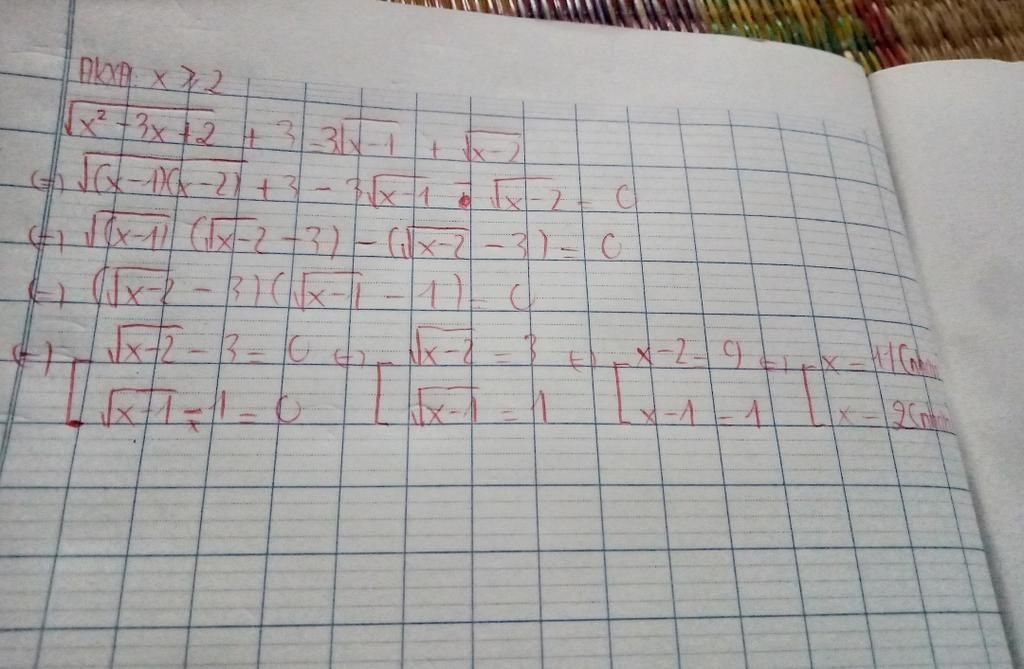 ĐKXĐ x ⩾ 2
√(x² - 3x + 2) + 3 = 3√(x-1) + √(x-2)
(=) √((x-1)(x-2)) + 3 - 3√(x-1) - √(x-2) = 0
(=) √(x-1) (√(x-2) - 3) - (√(x-2) - 3) = 0
(=) (√(x-2) - 3)(√(x-1) - 1) = 0
(=) [ √(x-2) - 3 = 0 (=) [ √(x-2) = 3 (=) [ x-2 = 9 (=) [ x = 11 (nhận)
√(x-1) - 1 = 0 √(x-1) = 1 x-1 = 1 x = 2 (nhận)